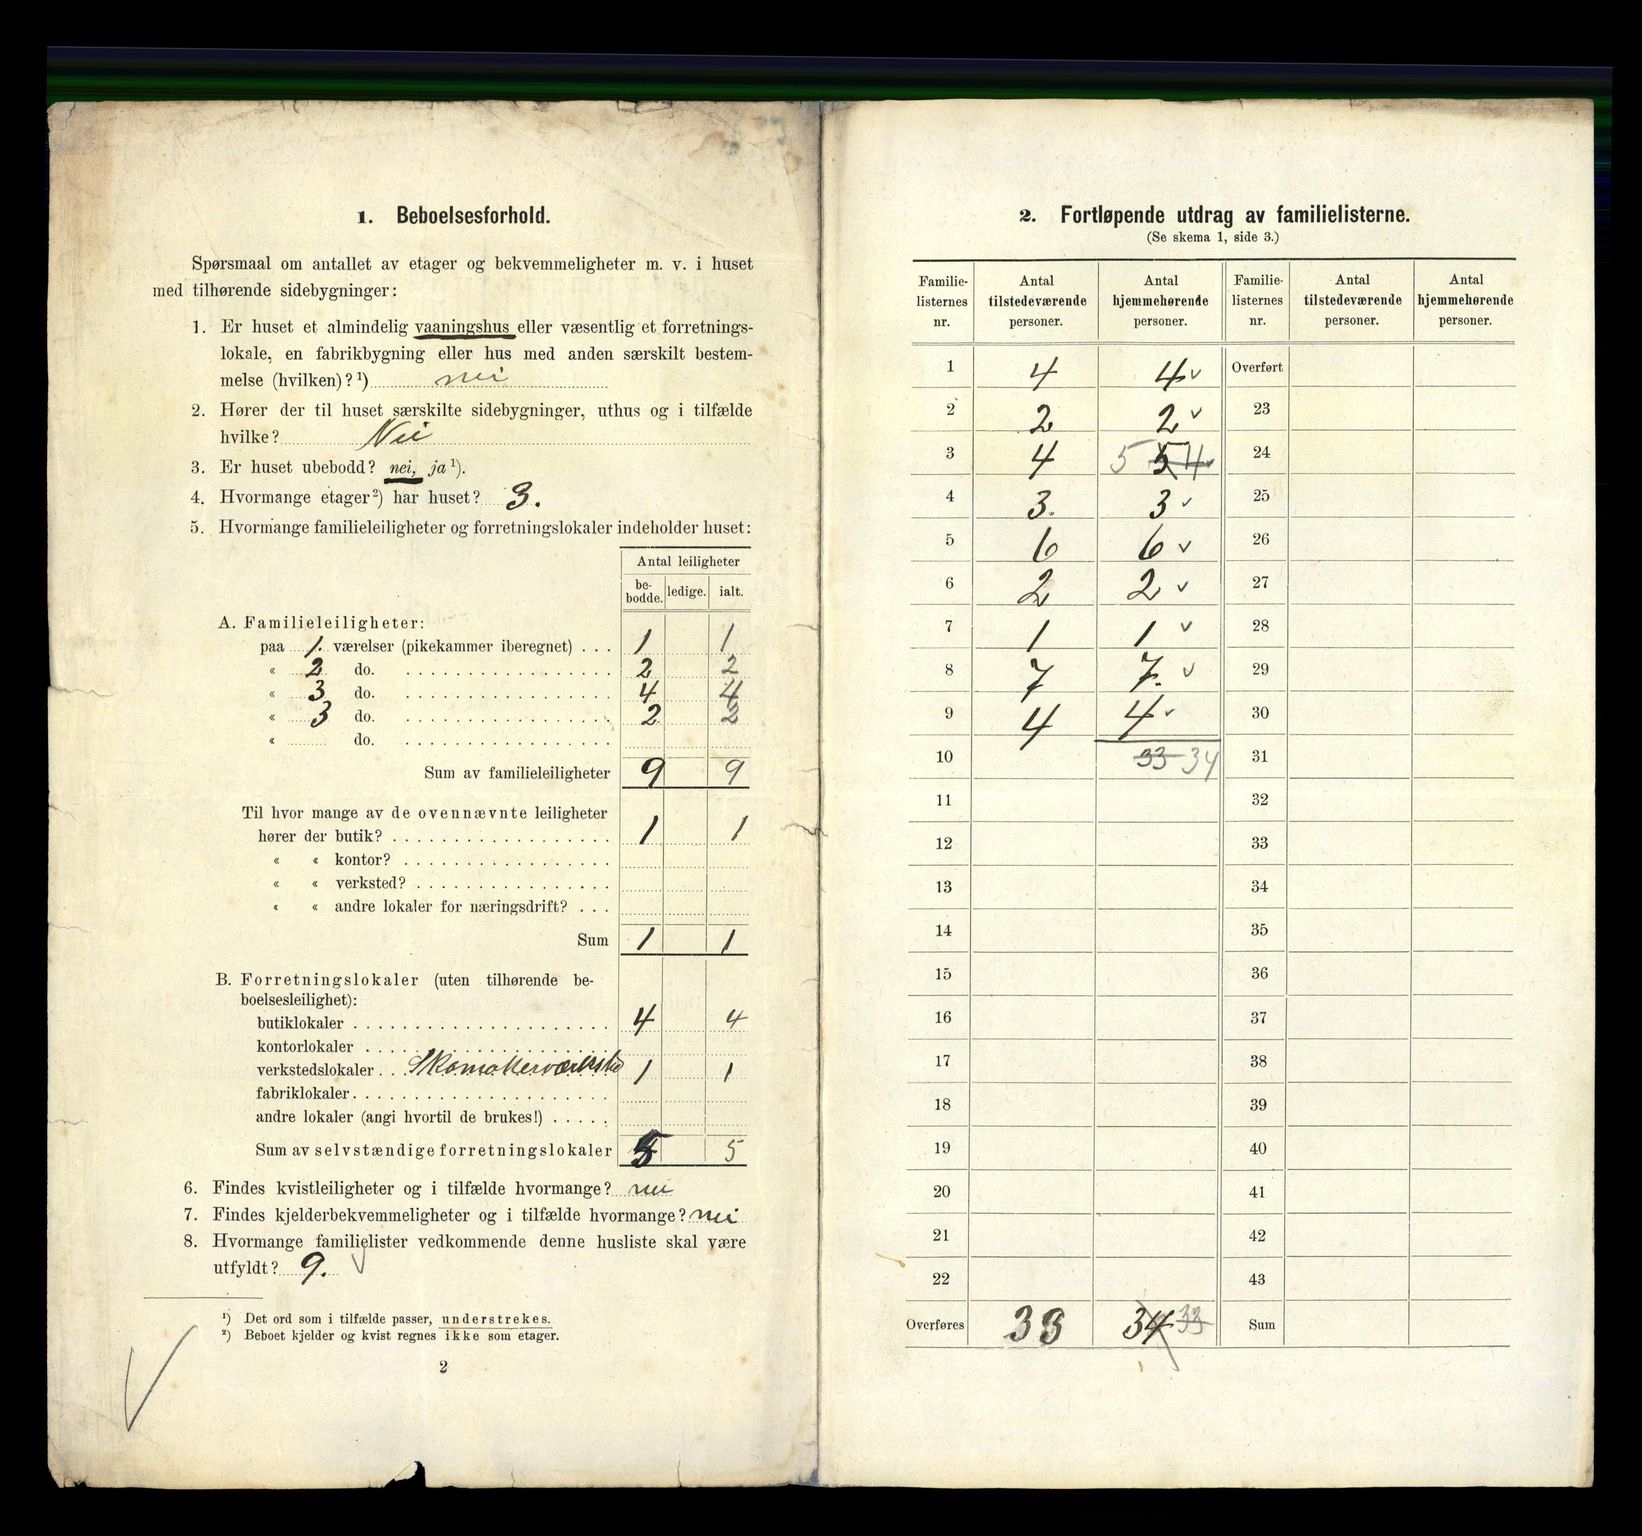 1. Beboelsesforhold.
Spørsmaal om antallet av etager og bekvemmeligheter m. v. i huset
med tilhørende sidebygninger:
1. Er huset et almindelig vaaningshus eller væsentlig et forretnings-
lokale, en fabrikbygning eller hus med anden særskilt bestem-
melse (hvilken)? ¹) nei
2. Hører der til huset særskilte sidebygninger, uthus og i tilfælde
hvilke? Nei
3. Er huset ubebodd? nei, ja ¹).
4. Hvormange etager ²) har huset? 3.
5. Hvormange familieleiligheter og forretningslokaler indeholder huset:
Antal leiligheter
be-bodde. ledige. ialt.
A. Familieleiligheter:
paa 1. værelser (pikekammer iberegnet) . . . 1 1
« 2 do. 2 2
« 3 do. 4 4
« 3 do. 2 2
« do.
Sum av familieleiligheter 9 9
Til hvor mange av de ovennævnte leiligheter
hører der butik? 1 1
« « kontor?
« « verksted?
« « andre lokaler for næringsdrift? . . .
Sum 1 1
B. Forretningslokaler (uten tilhørende be-
boelsesleilighet):
butiklokaler 4 4
kontorlokaler
verkstedslokaler . . Skomakerværksted 1 1
fabriklokaler
andre lokaler (angi hvortil de brukes!)
Sum av selvstændige forretningslokaler 5 5
6. Findes kvistleiligheter og i tilfælde hvormange? nei
7. Findes kjelderbekvemmeligheter og i tilfælde hvormange? nei
8. Hvormange familielister vedkommende denne husliste skal være
utfyldt? 9.
¹) Det ord som i tilfælde passer, understrekes.
²) Beboet kjelder og kvist regnes ikke som etager.
2
2. Fortløpende utdrag av familielisterne.
(Se skema 1, side 3.)
Familie-listernes nr. Antal tilstedeværende personer. Antal hjemmehørende personer. Familie-listernes nr. Antal tilstedeværende personer. Antal hjemmehørende personer.
1 4 4 Overført
2 2 2 23
3 4 5 5 4 24
4 3. 3 25
5 6 6 26
6 2 2 27
7 1 1 28
8 7 7. 29
9 4 4 30
10 33 34 31
11 32
12 33
13 34
14 35
15 36
16 37
17 38
18 39
19 40
20 41
21 42
22 43
Overføres 33 34 33 Sum